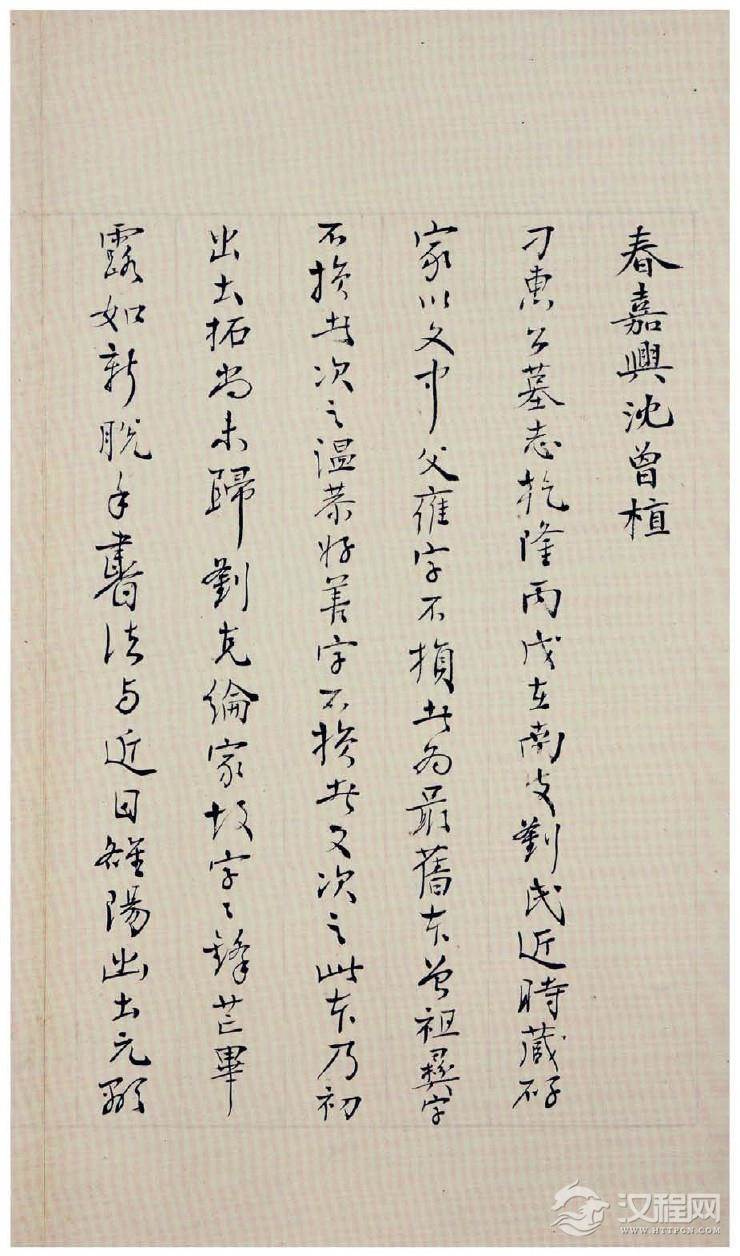 春嘉興沈曾植
刁惠公墓志乾隆丙戌在南皮劉氏近時藏碑
家以文中父雍字不損者為最舊本曾祖彝字
不損者次之温恭好善字不損者又次之此本乃初
出土拓尚未歸劉克綸家故字々鋒芒畢
露如新脫手書法与近日雒陽出土元顯
汉程网
WWW.HTTPCN.COM